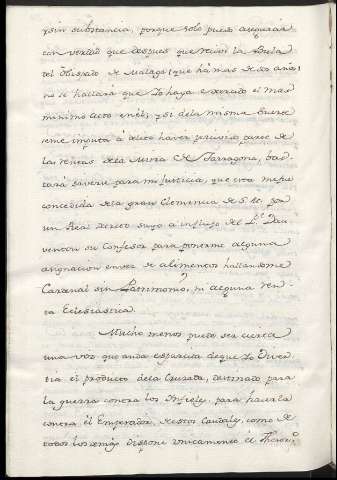 y sin substancia, porque solo puedo asegurar
con verdad que despues que recivi la Bula
del Obispado de Malaga (que hà mas de dos años)
no se hallarà que Yo haya exercido el mas
minimo acto en èl; y si de la misma suerte
se me imputa à delito haver percivido parte de
las rentas de la Mitra de Tarragona, bas
tarà saverse para mi Justicia, que esta me fue
concedida de la gran Clemencia de S. M. por
un Real decreto suyo a influjo del P.e Dau
venton su Confesor para ponerme alguna
asignacion en vez de alimentos hallandome
Cardenal sin Patrimonio, ni alguna ren
ta Eclesiastica.
Mucho menos puede ser cierta
una voz que anda esparcida de que Yo Diver
tia el producto de la Cruzada, destinado para
la guerra contra los Infieles, para hacerla
contra el Emperador, de estos Caudales, como de
todos los demàs dispone unicamente el Thesor.o